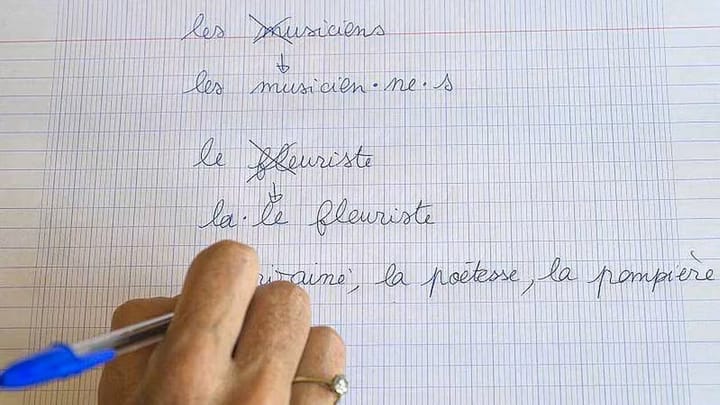 les musiciens
les musicien·ne·s
le fleuriste
la·le fleuriste
la poétesse, la pompière